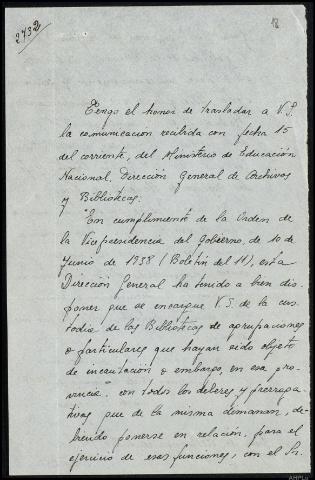 2732
18
Tengo el honor de trasladar a V.S.
la comunicacion recibida con fecha 15
del corriente, del Ministerio de Educación
Nacional, Dirección General de Archivos
y Bibliotecas:
"En cumplimiento de la Orden de
la Vicepresidencia del Gobierno, de 10 de
Junio de 1938 (Boletin del 11), esta
Dirección General ha tenido a bien dis-
poner que se encargue V.S. de la cus-
todia de las Bibliotecas de agrupaciones
o particulares que hayan sido objeto
de incautación o embargo, en esa pro-
vincia", con todos los deberes y prerroga-
tivas que de la misma dimanan, de-
biendo ponerse en relación, para el
ejercicio de esas funciones, con el Sr.
AHPLu